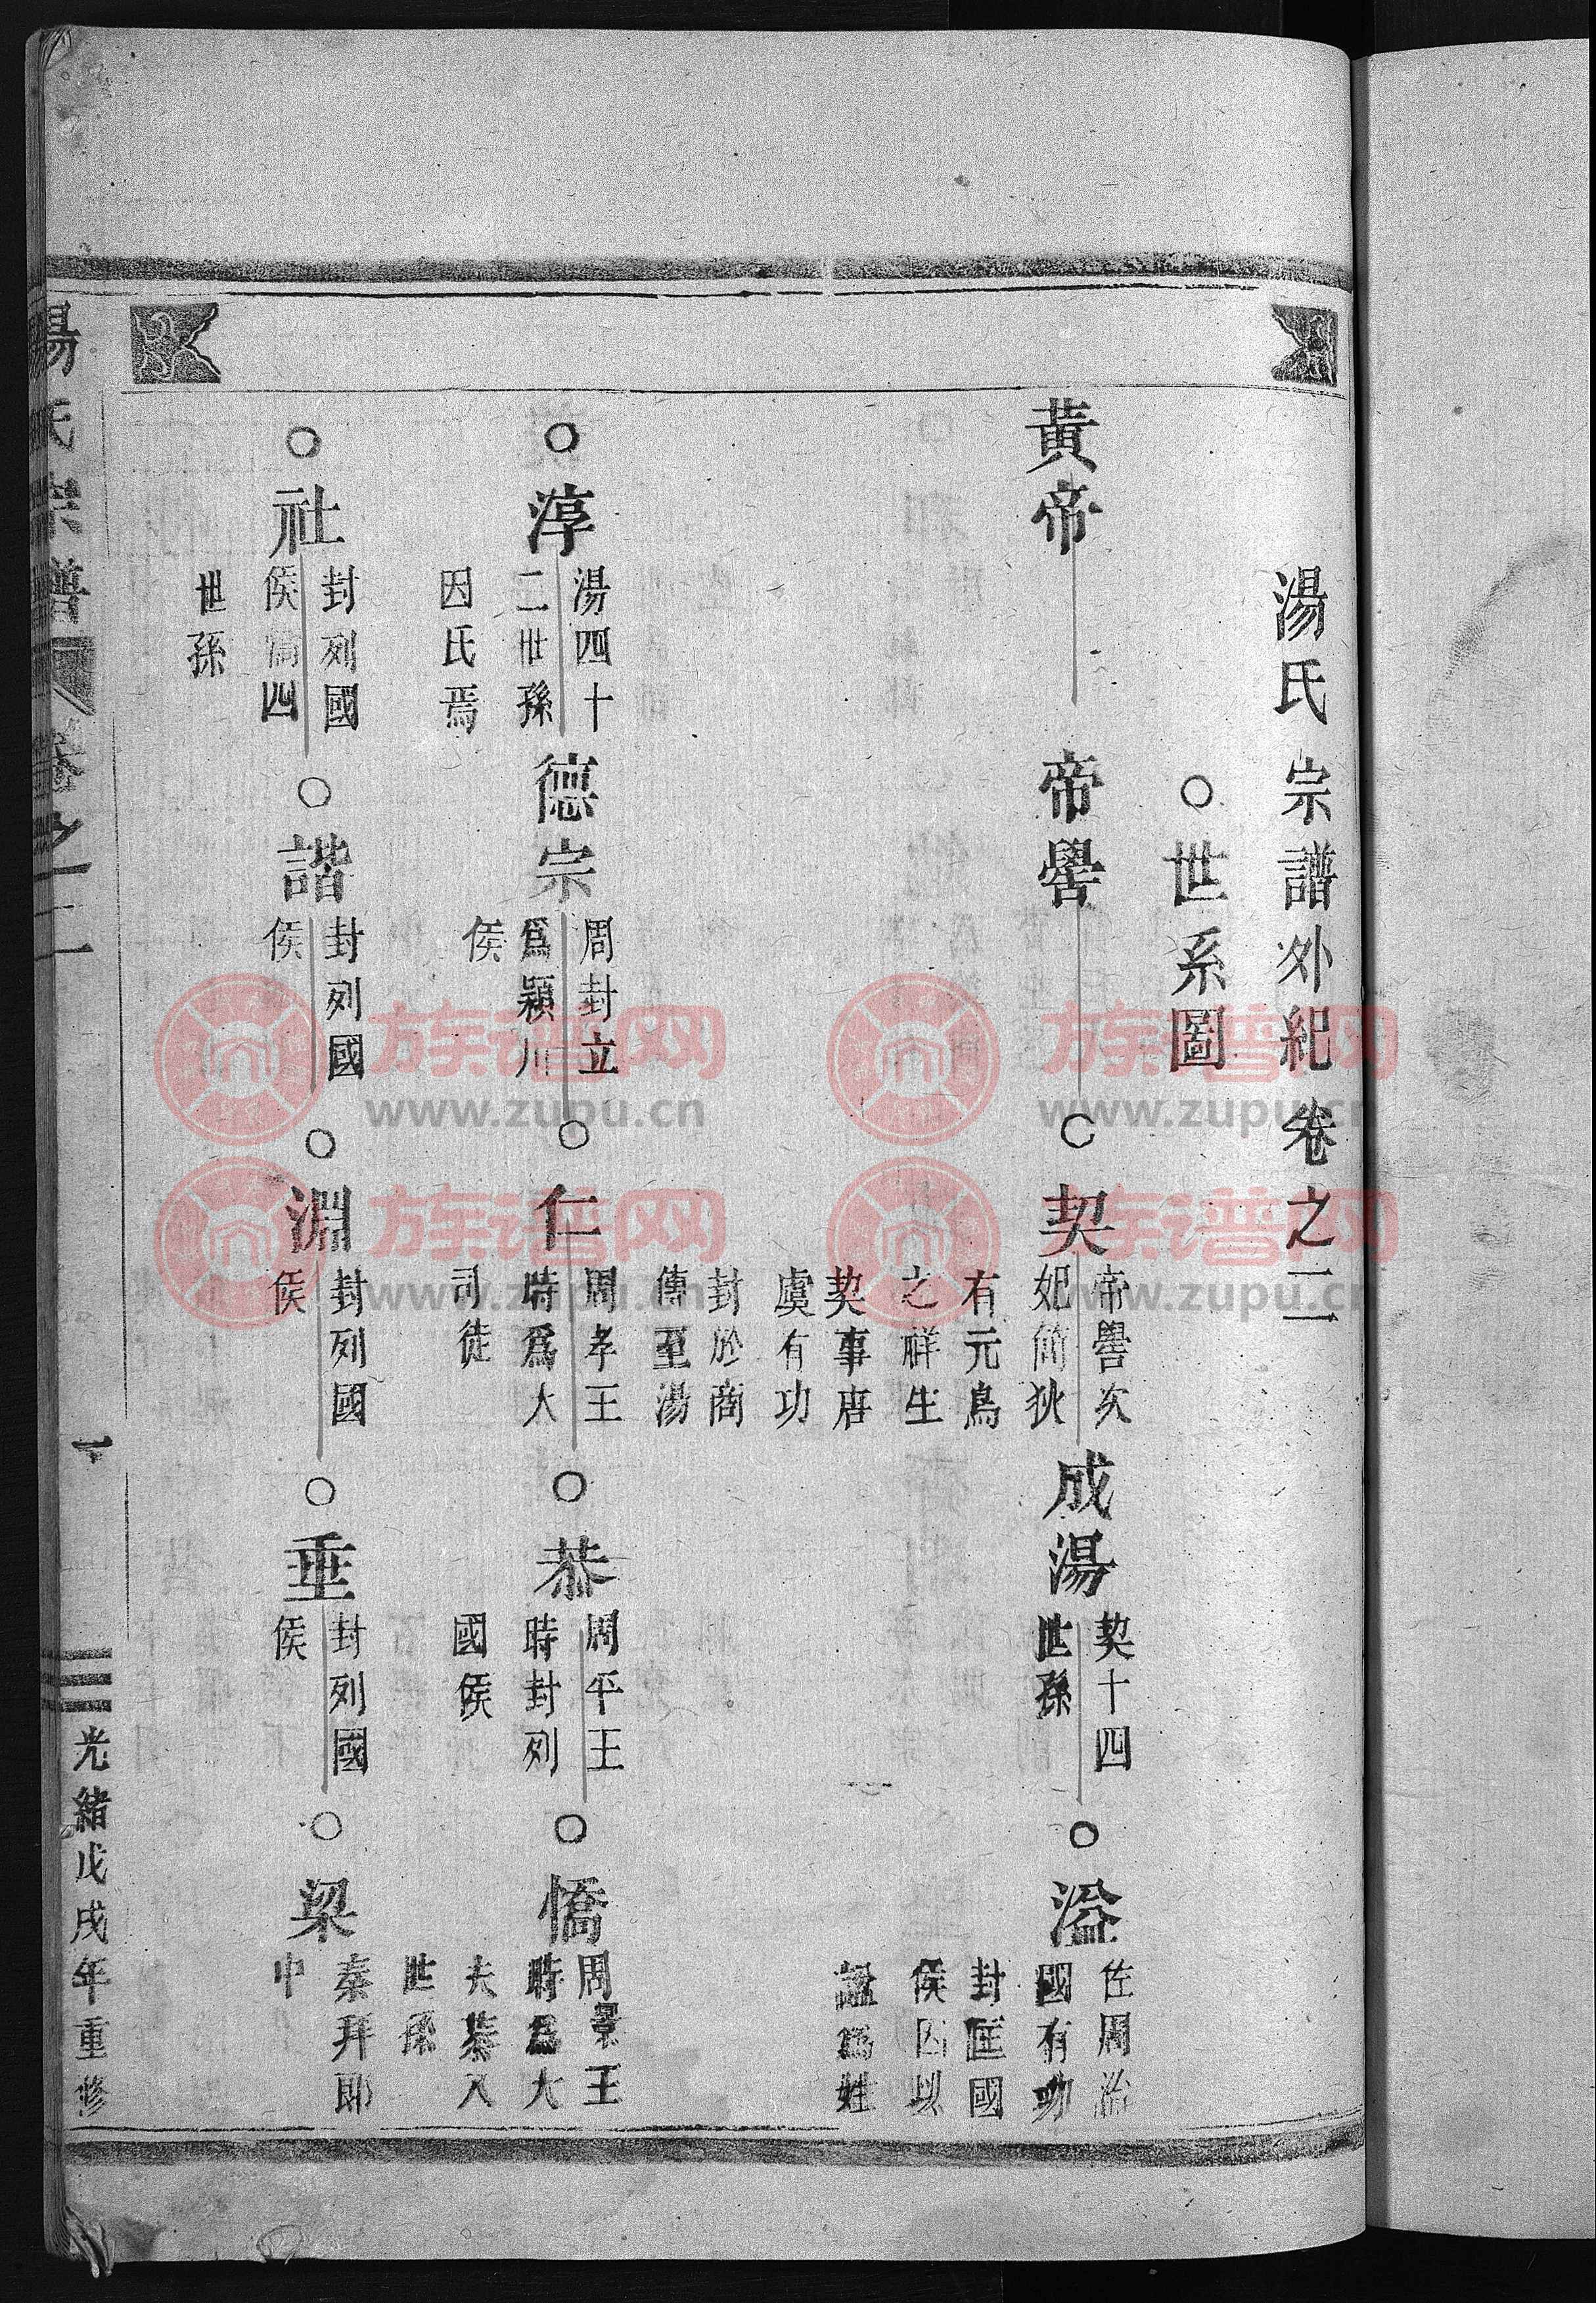 湯氏宗譜外紀卷之二
○世系圖
黃帝
帝嚳
○契
帝嚳次
妃簡狄
有元鳥
之祥生
契事唐
虞有功
封於商
傳至湯
成湯
契十四
世孫
○溢
佐周治
國有功
封匡國
侯因以
諡爲姓
○淳
湯四十
二世孫
因氏焉
德宗
周封立
爲潁川
侯
○仁
周孝王
時爲大
司徒
○恭
周平王
時封列
國侯
○憍
周景王
時爲大
夫恭入
世孫
○社
封列國
侯憍四
世孫
○諧
封列國
侯
○淵
封列國
侯
○垂
封列國
侯
○梁
秦拜郎
中
湯氏宗譜
卷之二
一
光緒戊戌年重修
族谱网
www.zupu.cn
族谱网
www.zupu.cn
族谱网
www.zupu.cn
族谱网
www.zupu.cn